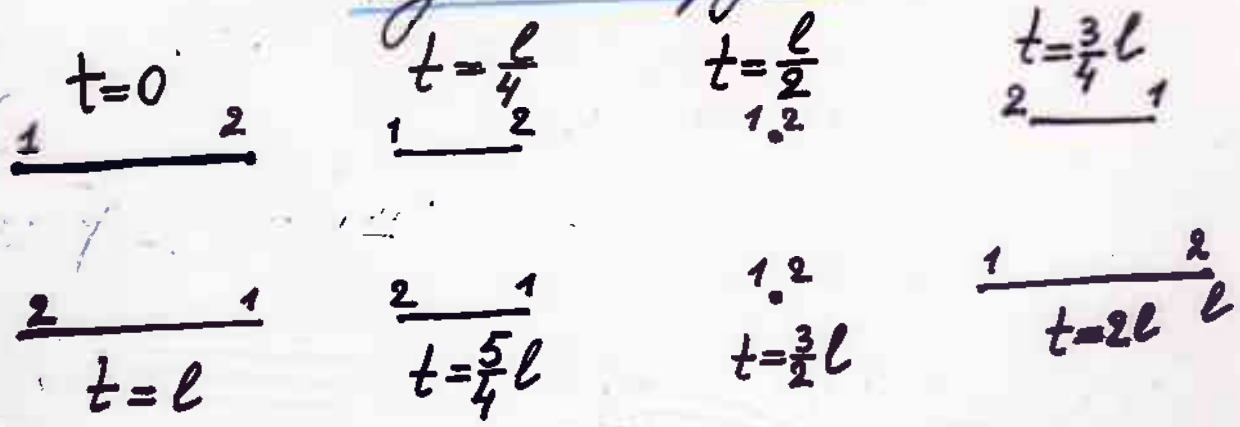 t=0
1 2
t=l/4
1 2
t=l/2
1 2
t=3/4 l
2 1
2 1
t=l
2 1
t=5/4 l
1 2
t=3/2 l
1 2
t=2l l